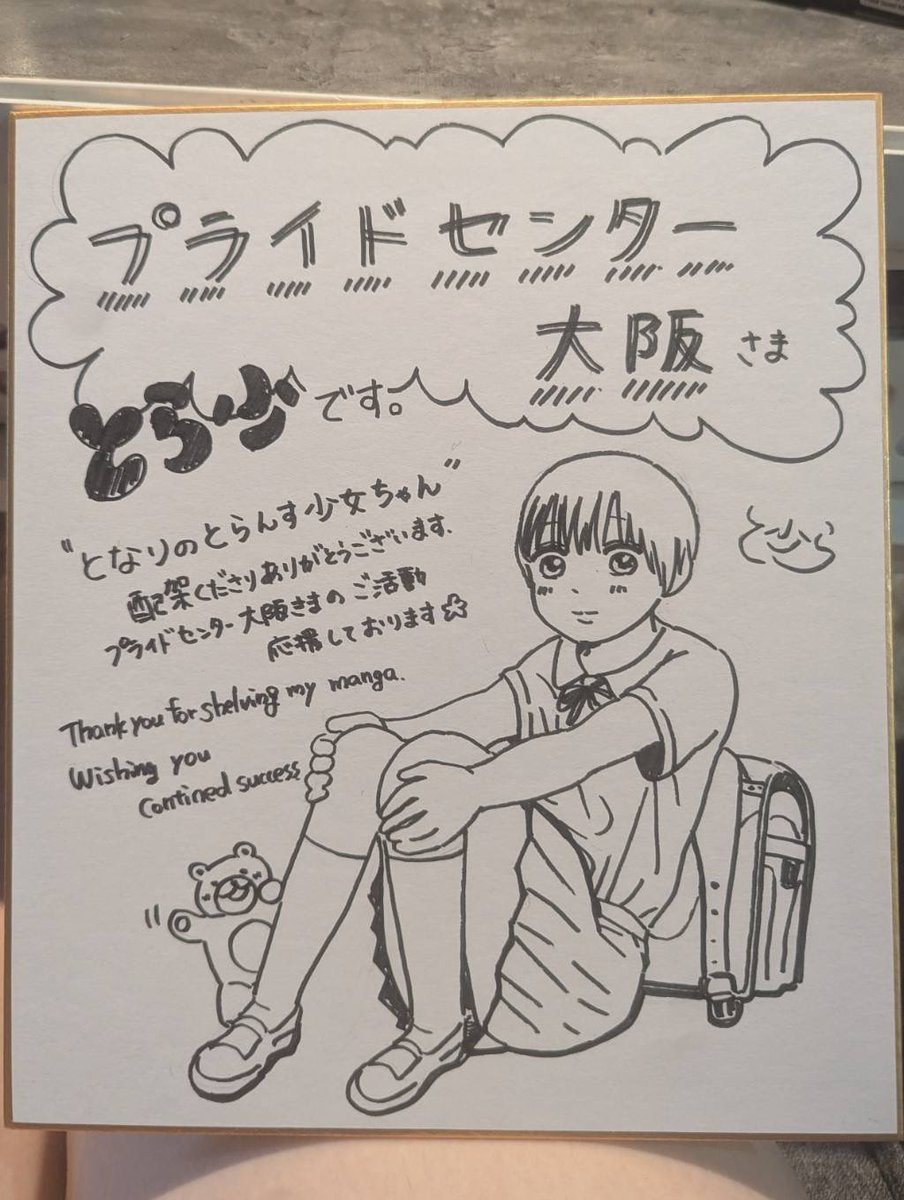 プライドセンター
大阪さま
とら少です。
"となりのとらんす少女ちゃん"
配架くださりありがとうございます.
プライドセンター大阪さまのご活動
応援しております☆
Thank you for shelving my manga.
Wishing you
contined success